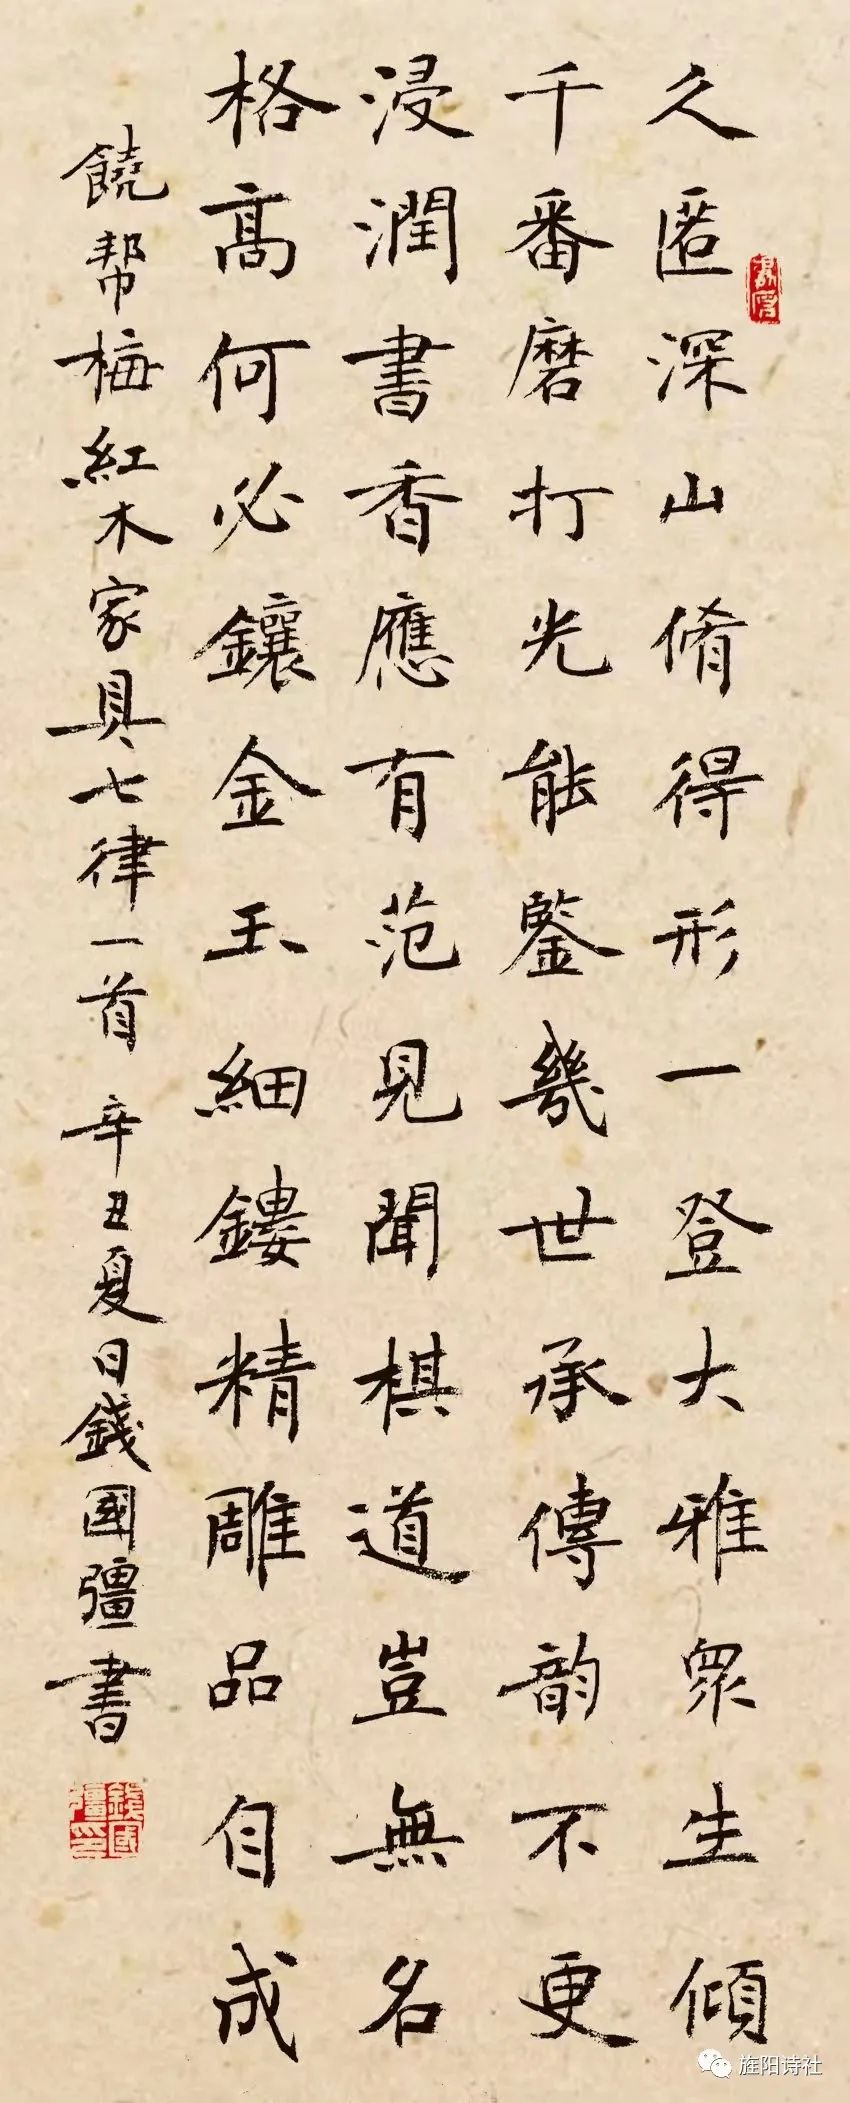 久匿深山脩得形一登大雅眾生傾
千番磨打光能鑒幾世承傳韵不更
浸潤書香應有范見聞棋道豈無名
格高何必鑲金玉細鏤精雕品自成
饒幫梅紅木家具七律一首 辛丑夏日錢國彊書
錢國彊印
旌阳诗社